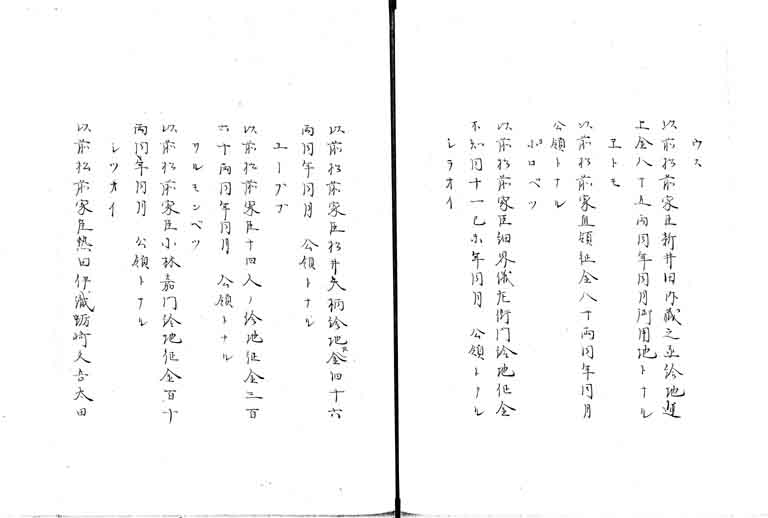 ウス
以前松前家臣新井田内蔵之丞給地運
上金八十五両同年同月御用地トナル
ヱトモ
以前松前家直領征金八十両同年同月
公領トナル
ホロベツ
以前松前家臣細界儀左衛門給地征金
不知同十一己未年同月 公領トナル
シラオイ
以前松前家臣松井矢柄給地征金四十六
両同年同月 公領トナル
ユーブツ
以前松前家臣十四人ノ給地征金二百
六十両同年同月 公領トナル
サルモンベツ
以前松前家臣小林嘉門給地征金百十
両同年同月 公領トナル
シツナイ
以前松前家臣熱田伊織蛎崎又吾太田